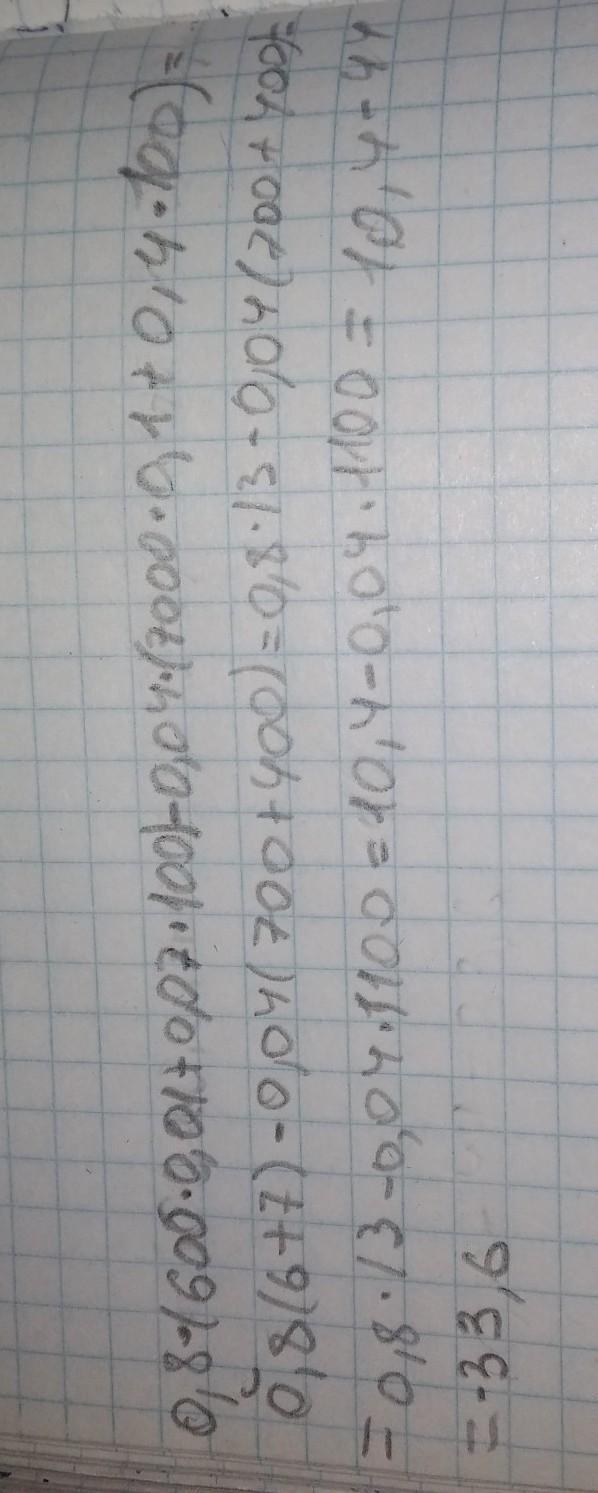 0,8·(600·0,01+0,07·100)-0,04·(7000·0,1+0,4·100)=
0,8(6+7)-0,04(700+400)=0,8·13-0,04(700+400)=
=0,8·13-0,04·1100=10,4-0,04·1100=10,4-44
=-33,6